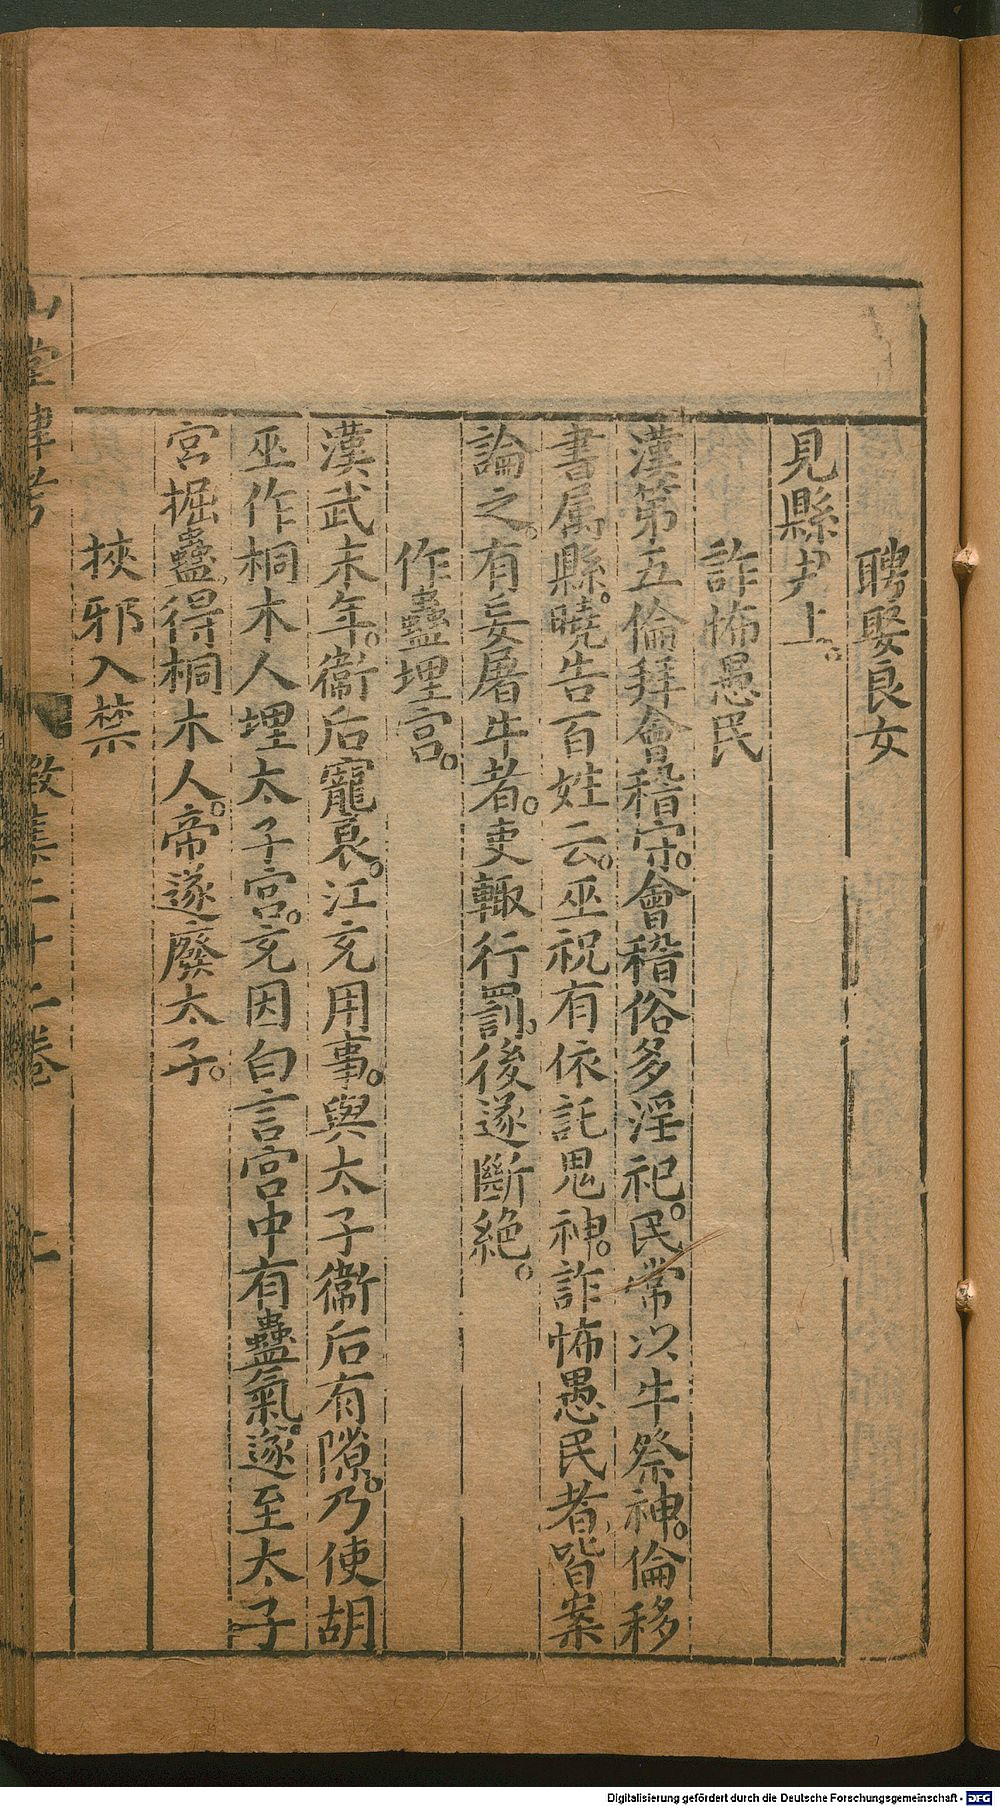 聘娶良女
見縣尹上。
詐怖愚民
漢第五倫拜會稽守。會稽俗多淫祀。民常以牛祭神。倫移
書属縣。曉告百姓云。巫祝有依託鬼神。詐怖愚民者。皆案
論之。有妄屠牛者。吏輙行罰。後遂斷絶。
作蠱埋宫。
漢武末年。衞后寵衰。江充用事。與太子衞后有隙。乃使胡
巫作桐木人埋太子宫。充因白言宫中有蠱氣。遂至太子
宫掘蠱。得桐木人。帝遂廢太子。
挾邪入禁
山堂肆考
徵集二十二卷
二
Digitalisierung gefördert durch die Deutsche Forschungsgemeinschaft - DFG